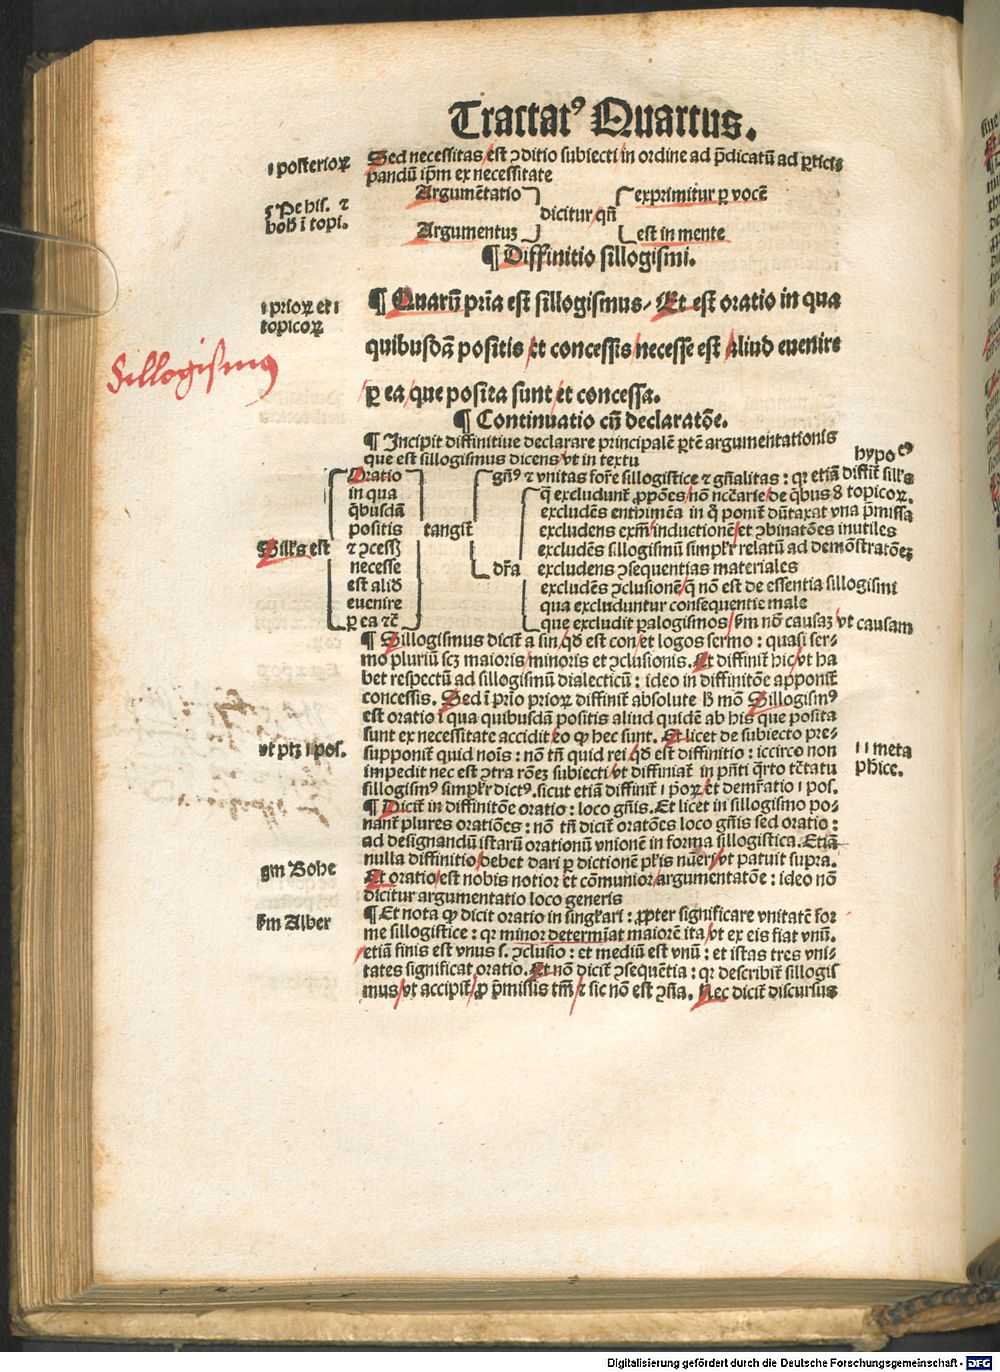 Tractatꝰ Quartus.
Sed necessitas est ꝯditio subiecti in ordine ad p̄dicatū ad ꝑtici-
pandū ip̄m ex necessitate
ı posterioꝝ
Argumētatio exprimitur ꝑ vocē
dicitur qñ
Argumentuꝫ est in mente
bohꝰ ī topi.
¶ Diffinitio sillogismi.
¶ Quarū pria est sillogismus. Et est oratio in qua
ı prioꝝ et ı
topicoꝝ
quibusdā positis et concessis necesse est aliud euenire
Sillogismꝰ
ꝑ ea que posita sunt et concessa.
¶ Continuatio cū declaratōe.
¶ Incipit diffinitiue declarare principalē ꝑtē argumentationis
que est sillogismus dicens vt in textu
hypoᶜꝰ
Silꝉs est
Oratio
in qua
q̄busdā
positis
ꞇ ꝯcessꝭ
necesse
est aliđ
euenire
ꝑ ea ꞇc̄
tangit̄
gñꝰ ꞇ vnitas for̄e sillogistice ꞇ gñalitas : qꝛ etiā diffit̄ silꝉs
dr̄a
q̄ excludunt̄ ꝓpōes nō nccārie de q̄bus 8 topicoꝝ.
excludens enthimēa in q̄ ponit̄ dūtaxat vna p̄missa
excludens exm̄ inductionē et ꝯbinatōes inutiles
excludēs sillogismū simplr̄ relatū ad demōstratōeꝫ
excludens ꝯsequentias materiales
excludēs ꝯclusionē q̄ nō est de essentia sillogismi
qua excluduntur consequentie male
que excludit ꝑalogismos ẜm nō causaꝫ vt causam
¶ Sillogismus dicit̄ a sin, qđ est con et logos sermo : quasi ser-
mo pluriū scꝫ maioris minoris et ꝯclusionis. Et diffinit̄ hic vt ha
bet respectū ad sillogismū dialecticū : ideo in diffinitōe apponit̄
concessis. Sed ī prio prioꝝ diffinit̄ absolute ħ mō Sillogismꝰ
est oratio ī qua quibusdā positis aliud quidē ab his que posita
sunt ex necessitate accidit eo ꝙ hec sunt. Et licet de subiecto pre-
vt ptꝫ ı pos.
supponit̄ quid nois : nō tñ quid rei qđ est diffinitio : iccirco non
ıı meta
phice.
impedit nec est ꝯtra rōeꝫ subiecti vt diffiniat̄ in pn̄ti q̄rto tc̄tatu
sillogismꝰ simplr̄ dictꝰ. sicut etiā diffinit̄ ı p̄oꝝ et demr̄atio ı pos.
¶ Dicit̄ in diffinitōe oratio : loco gn̄is. Et licet in sillogismo po-
nant̄ plures oratiōes : nō tñ dicit̄ oratōes loco gn̄is sed oratio :
ad designandū istarū orationū vnionē in forma sillogistica. Etiā
nulla diffinitio debet dari ꝑ dictionē pꝉris nūeri vt patuit supra.
gm Bohe
Et oratio est nobis notior et cōmunior argumentatōe : ideo nō
dicitur argumentatio loco generis
ẜm Alber
¶ Et nota ꝙ dicit oratio in singꝉari : ꝓpter significare vnitatē for
me sillogistice : qꝛ minor determīat maiorē ita vt ex eis fiat vnū.
etiā finis est vnus s. ꝯclusio : et mediū est vnū : et istas tres vni-
tates significat oratio. Et nō dicit̄ ꝯsequētia : qꝛ describit̄ sillogis
mus vt accipit̄ ꝓ p̄missis tm̄ ꞇ sic nō est ꝯn̄a. Nec dicit̄ discursus
Digitalisierung gefördert durch die Deutsche Forschungsgemeinschaft - DFG